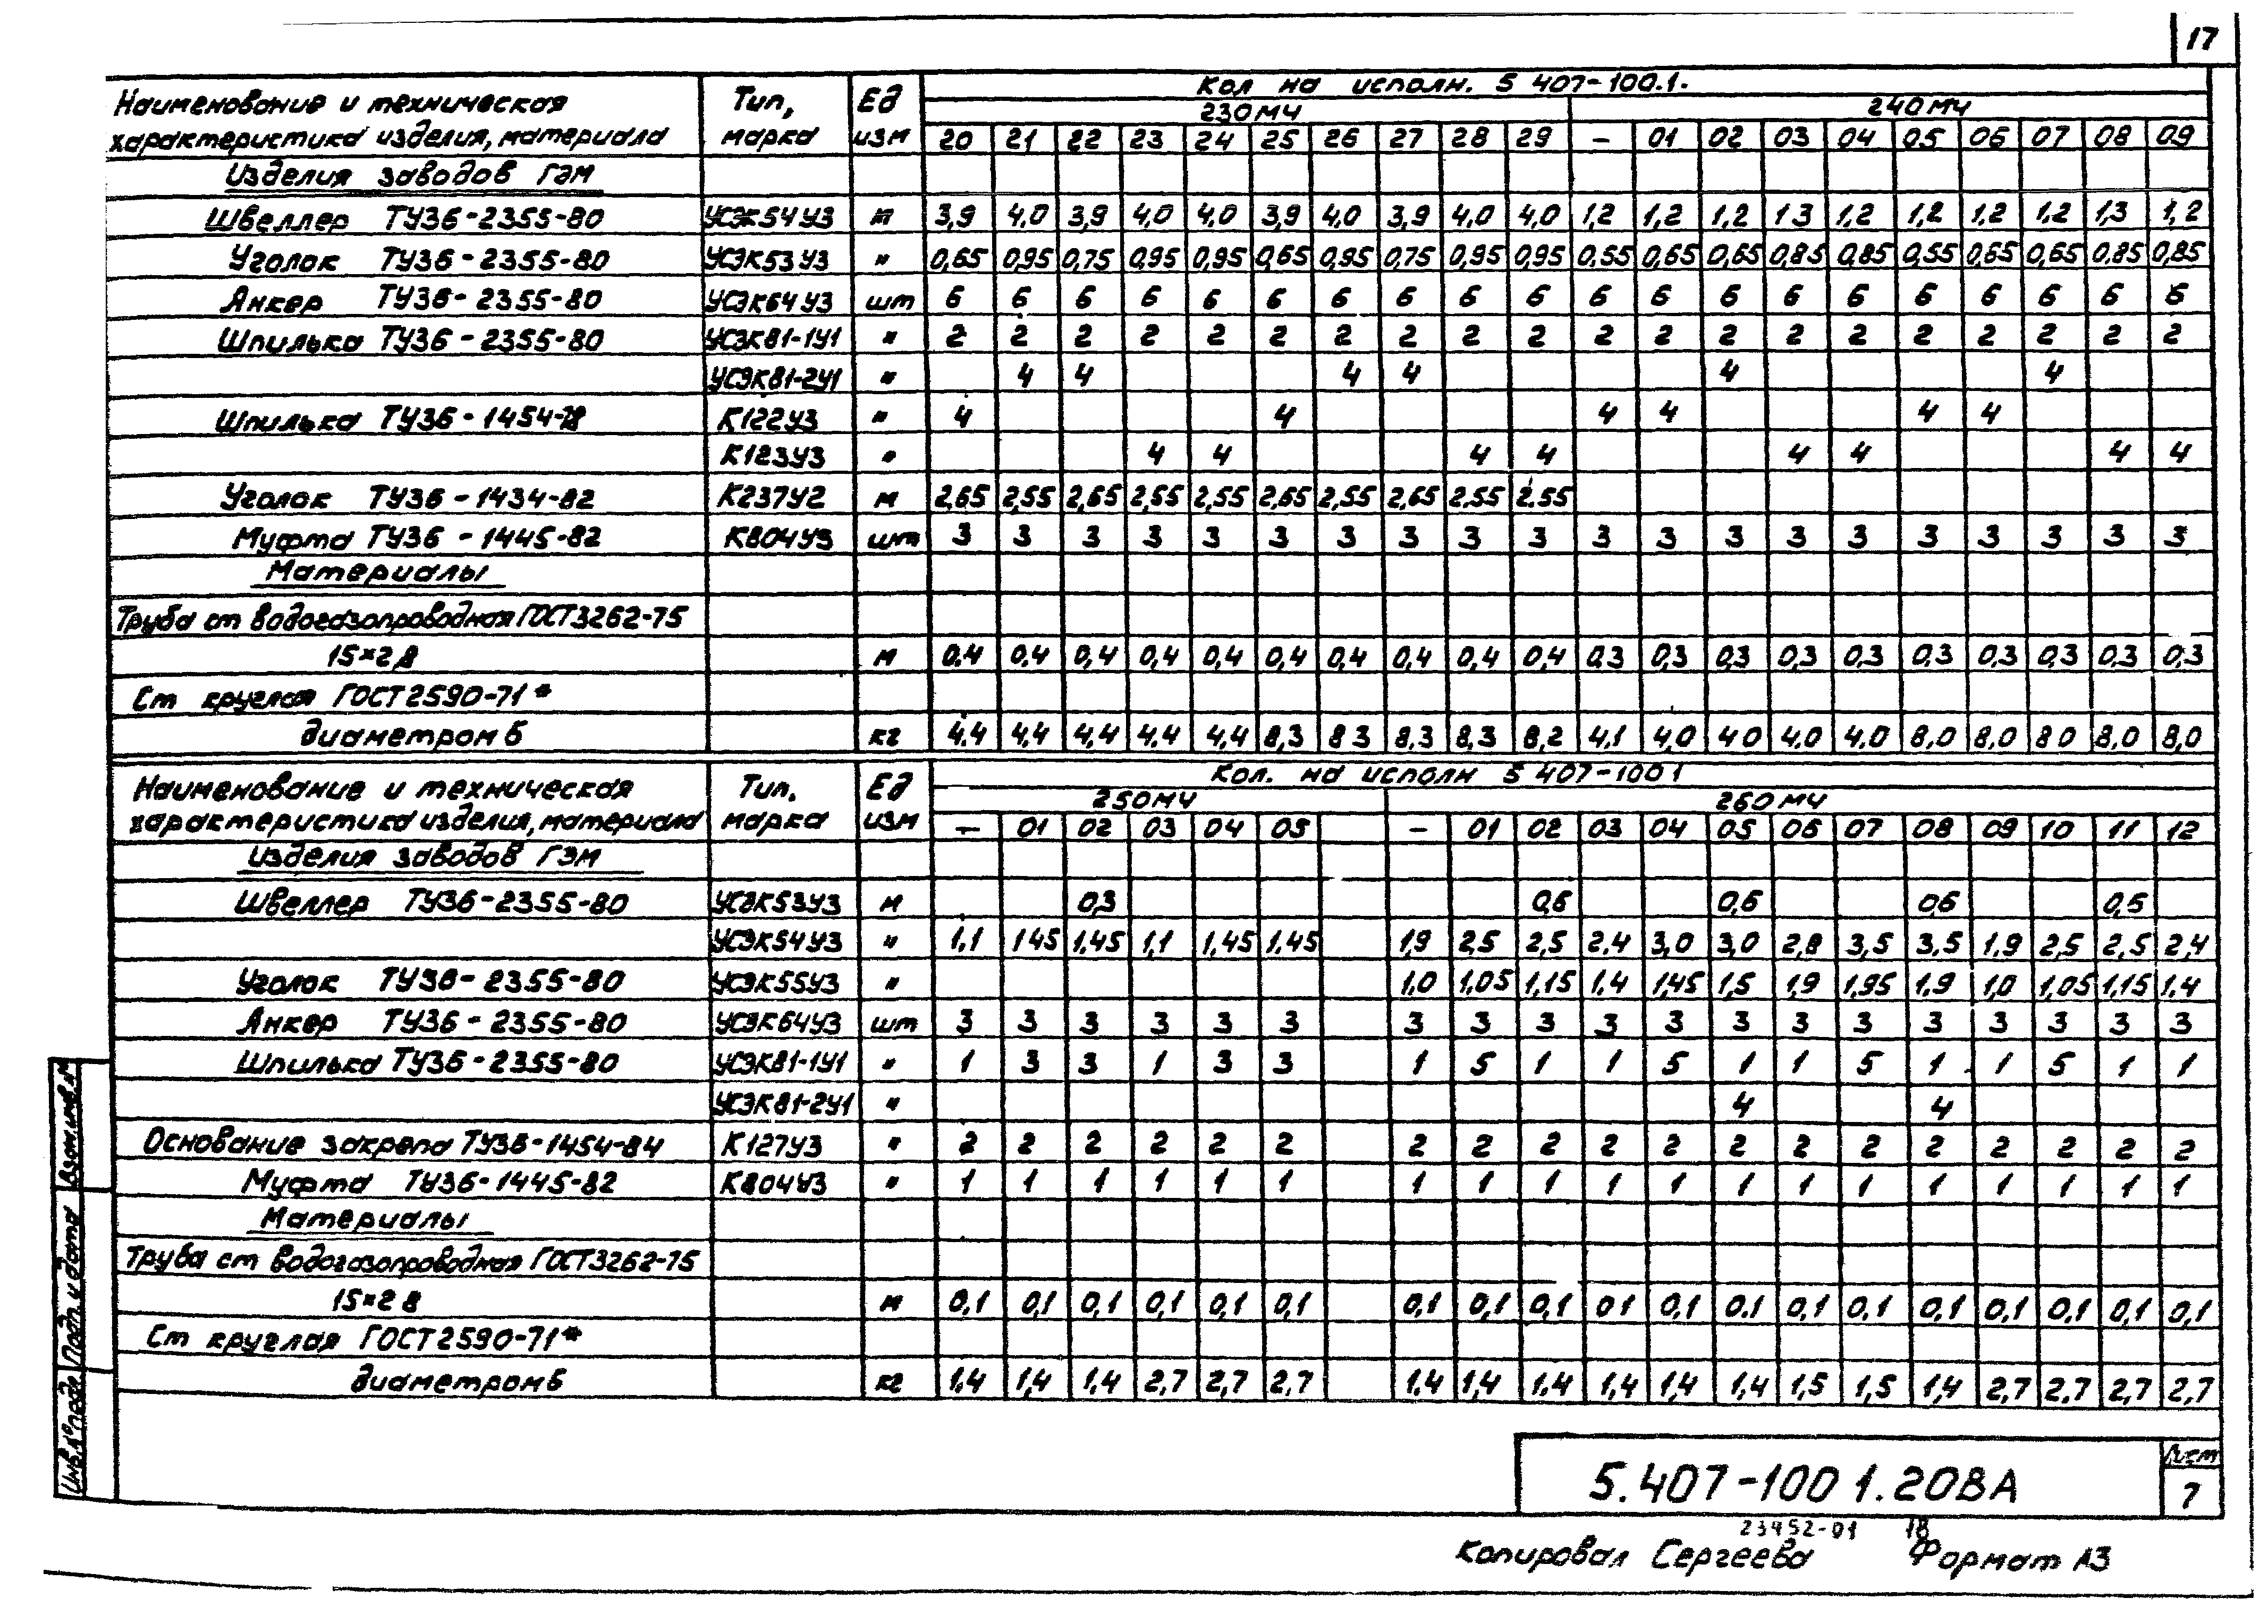 17
Наименование и техническая характеристика изделия, материала Тип, марка Ед изм Кол на исполн. 5 407-100.1.
230МЧ 240МЧ
20 21 22 23 24 25 26 27 28 29 – 01 02 03 04 05 06 07 08 09
Изделия заводов ГЭМ
Швеллер ТУ36-2355-80 УСЭК54У3 м 3,9 4,0 3,9 4,0 4,0 3,9 4,0 3,9 4,0 4,0 1,2 1,2 1,2 1 3 1,2 1,2 1,2 1,2 1,3 1,2
Уголок ТУ36-2355-80 УСЭК53У3 " 0,65 0,95 0,75 0,95 0,95 0,65 0,95 0,75 0,95 0,95 0,55 0,65 0,65 0,85 0,85 0,55 0,65 0,65 0,85 0,85
Анкер ТУ36-2355-80 УСЭК64У3 шт 6 6 6 6 6 6 6 6 6 6 6 6 6 6 6 6 6 6 6 6
Шпилька ТУ36-2355-80 УСЭК81-1У1 " 2 2 2 2 2 2 2 2 2 2 2 2 2 2 2 2 2 2 2 2
УСЭК81-2У1 " 4 4 4 4 4 4
Шпилька ТУ36-1454-78 К122У3 " 4 4 4 4 4 4
К123У3 " 4 4 4 4 4 4 4 4
Уголок ТУ36-1434-82 К237У2 м 2,65 2,55 2,65 2,55 2,55 2,65 2,55 2,65 2,55 2.55
Муфта ТУ36-1445-82 К804У3 шт 3 3 3 3 3 3 3 3 3 3 3 3 3 3 3 3 3 3 3 3
Материалы
Труба ст водогазопроводная ГОСТ3262-75
15×2,8 м 0,4 0,4 0,4 0,4 0,4 0,4 0,4 0,4 0,4 0,4 0,3 0,3 0,3 0,3 0,3 0,3 0,3 0,3 0,3 0,3
Ст круглая ГОСТ2590-71*
диаметром 6 кг 4,4 4,4 4,4 4,4 4,4 8,3 8 3 8,3 8,3 8,2 4,1 4,0 4 0 4,0 4,0 8,0 8,0 8 0 8,0 8,0
Наименование и техническая характеристика изделия, материала Тип, марка Ед изм Кол. на исполн 5 407-100 1
250МЧ 260МЧ
– 01 02 03 04 05 – 01 02 03 04 05 06 07 08 09 10 11 12
Изделия заводов ГЭМ
Швеллер ТУ36-2355-80 УСЭК53У3 м 0,3 0,6 0,6 0,6 0,6
УСЭК54У3 " 1,1 1 45 1,45 1,1 1,45 1,45 1,9 2,5 2,5 2,4 3,0 3,0 2,8 3,5 3,5 1,9 2,5 2,5 2,4
Уголок ТУ36-2355-80 УСЭК55У3 " 1,0 1,05 1,15 1,4 1,45 1,5 1,9 1,95 1,9 1,0 1,05 1,15 1,4
Анкер ТУ36-2355-80 УСЭК64У3 шт 3 3 3 3 3 3 3 3 3 3 3 3 3 3 3 3 3 3 3
Шпилька ТУ36-2355-80 УСЭК81-1У1 " 1 3 3 1 3 3 1 5 1 1 5 1 1 5 1 1 5 1 1
УСЭК81-2У1 " 4 4
Основание закрепа ТУ36-1454-84 К127У3 " 2 2 2 2 2 2 2 2 2 2 2 2 2 2 2 2 2 2 2
Муфта ТУ36-1445-82 К804У3 " 1 1 1 1 1 1 1 1 1 1 1 1 1 1 1 1 1 1 1
Материалы
Труба ст водогазопроводная ГОСТ3262-75
15×2 8 м 0,1 0,1 0,1 0,1 0,1 0,1 0,1 0,1 0,1 0 1 0,1 0.1 0,1 0,1 0,1 0,1 0,1 0,1 0,1
Ст круглая ГОСТ2590-71*
диаметром 6 кг 1,4 1,4 1,4 2,7 2,7 2,7 1,4 1,4 1,4 1,4 1,4 1,4 1,5 1,5 1,4 2,7 2,7 2,7 2,7
Взам.инв.№
Подп. и дата
Инв.№подл.
5.407-100 1.20ВА
Лист
7
23452-01 18
Копировал Сергеева Формат А3